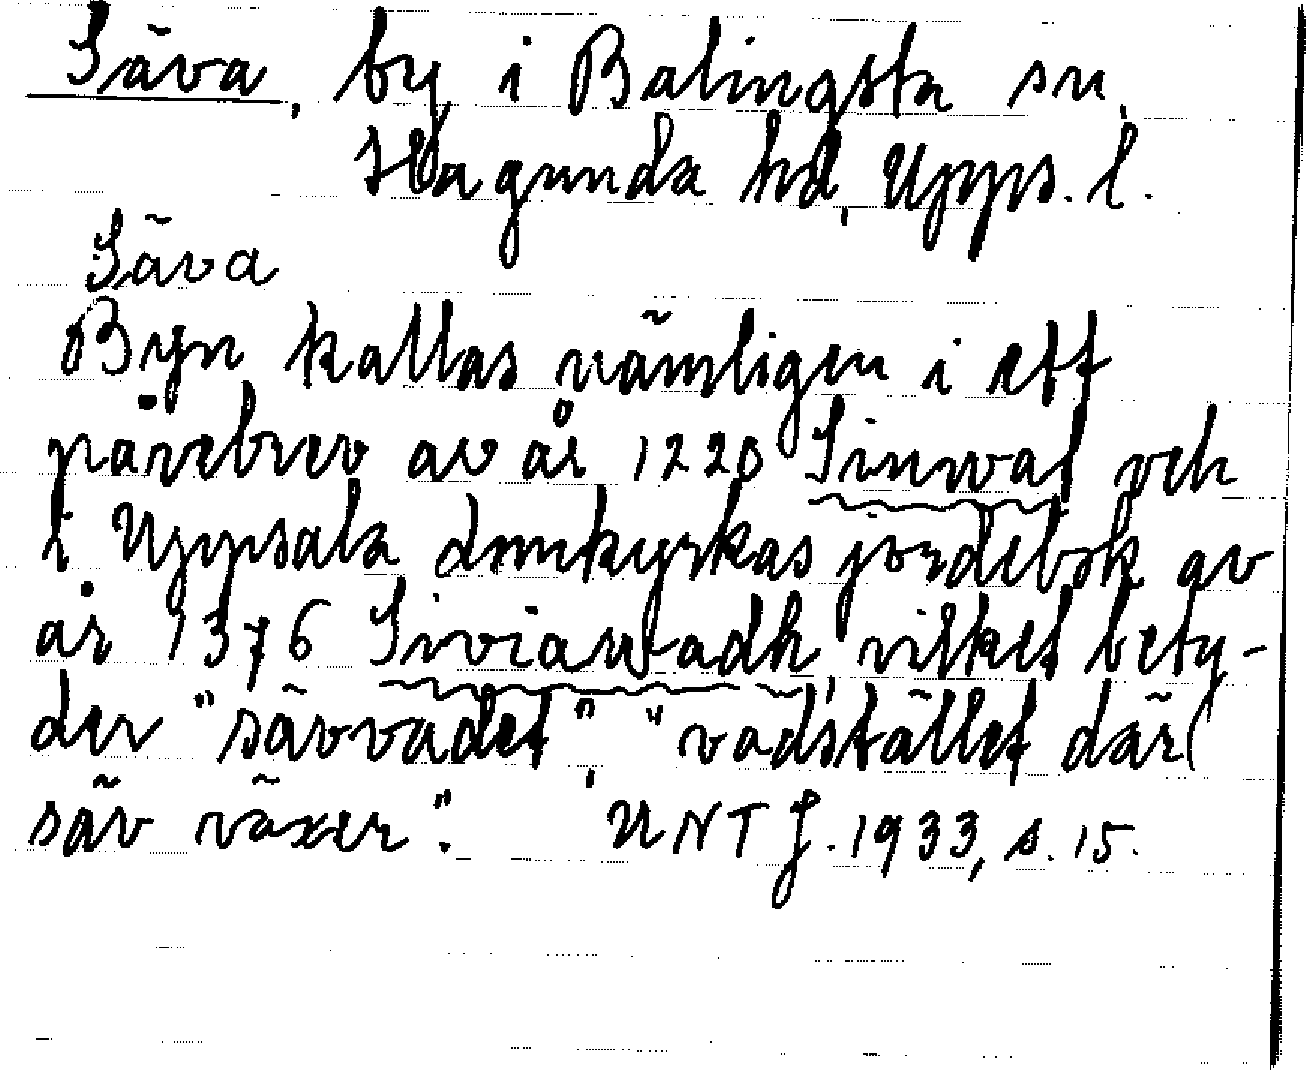 Säva, by i Balingsta sn,
Hagunda hd, Upps. l.
Säva
Byn kallas nämligen i ett
påvebrev av år 1220 Sinwat och
i Uppsala domkyrkas jordebok av
år 1376 Siviawadh, vilket bety-
der "sävvadet", "vadstället där
säv växer". UNT J. 1933, s. 15.